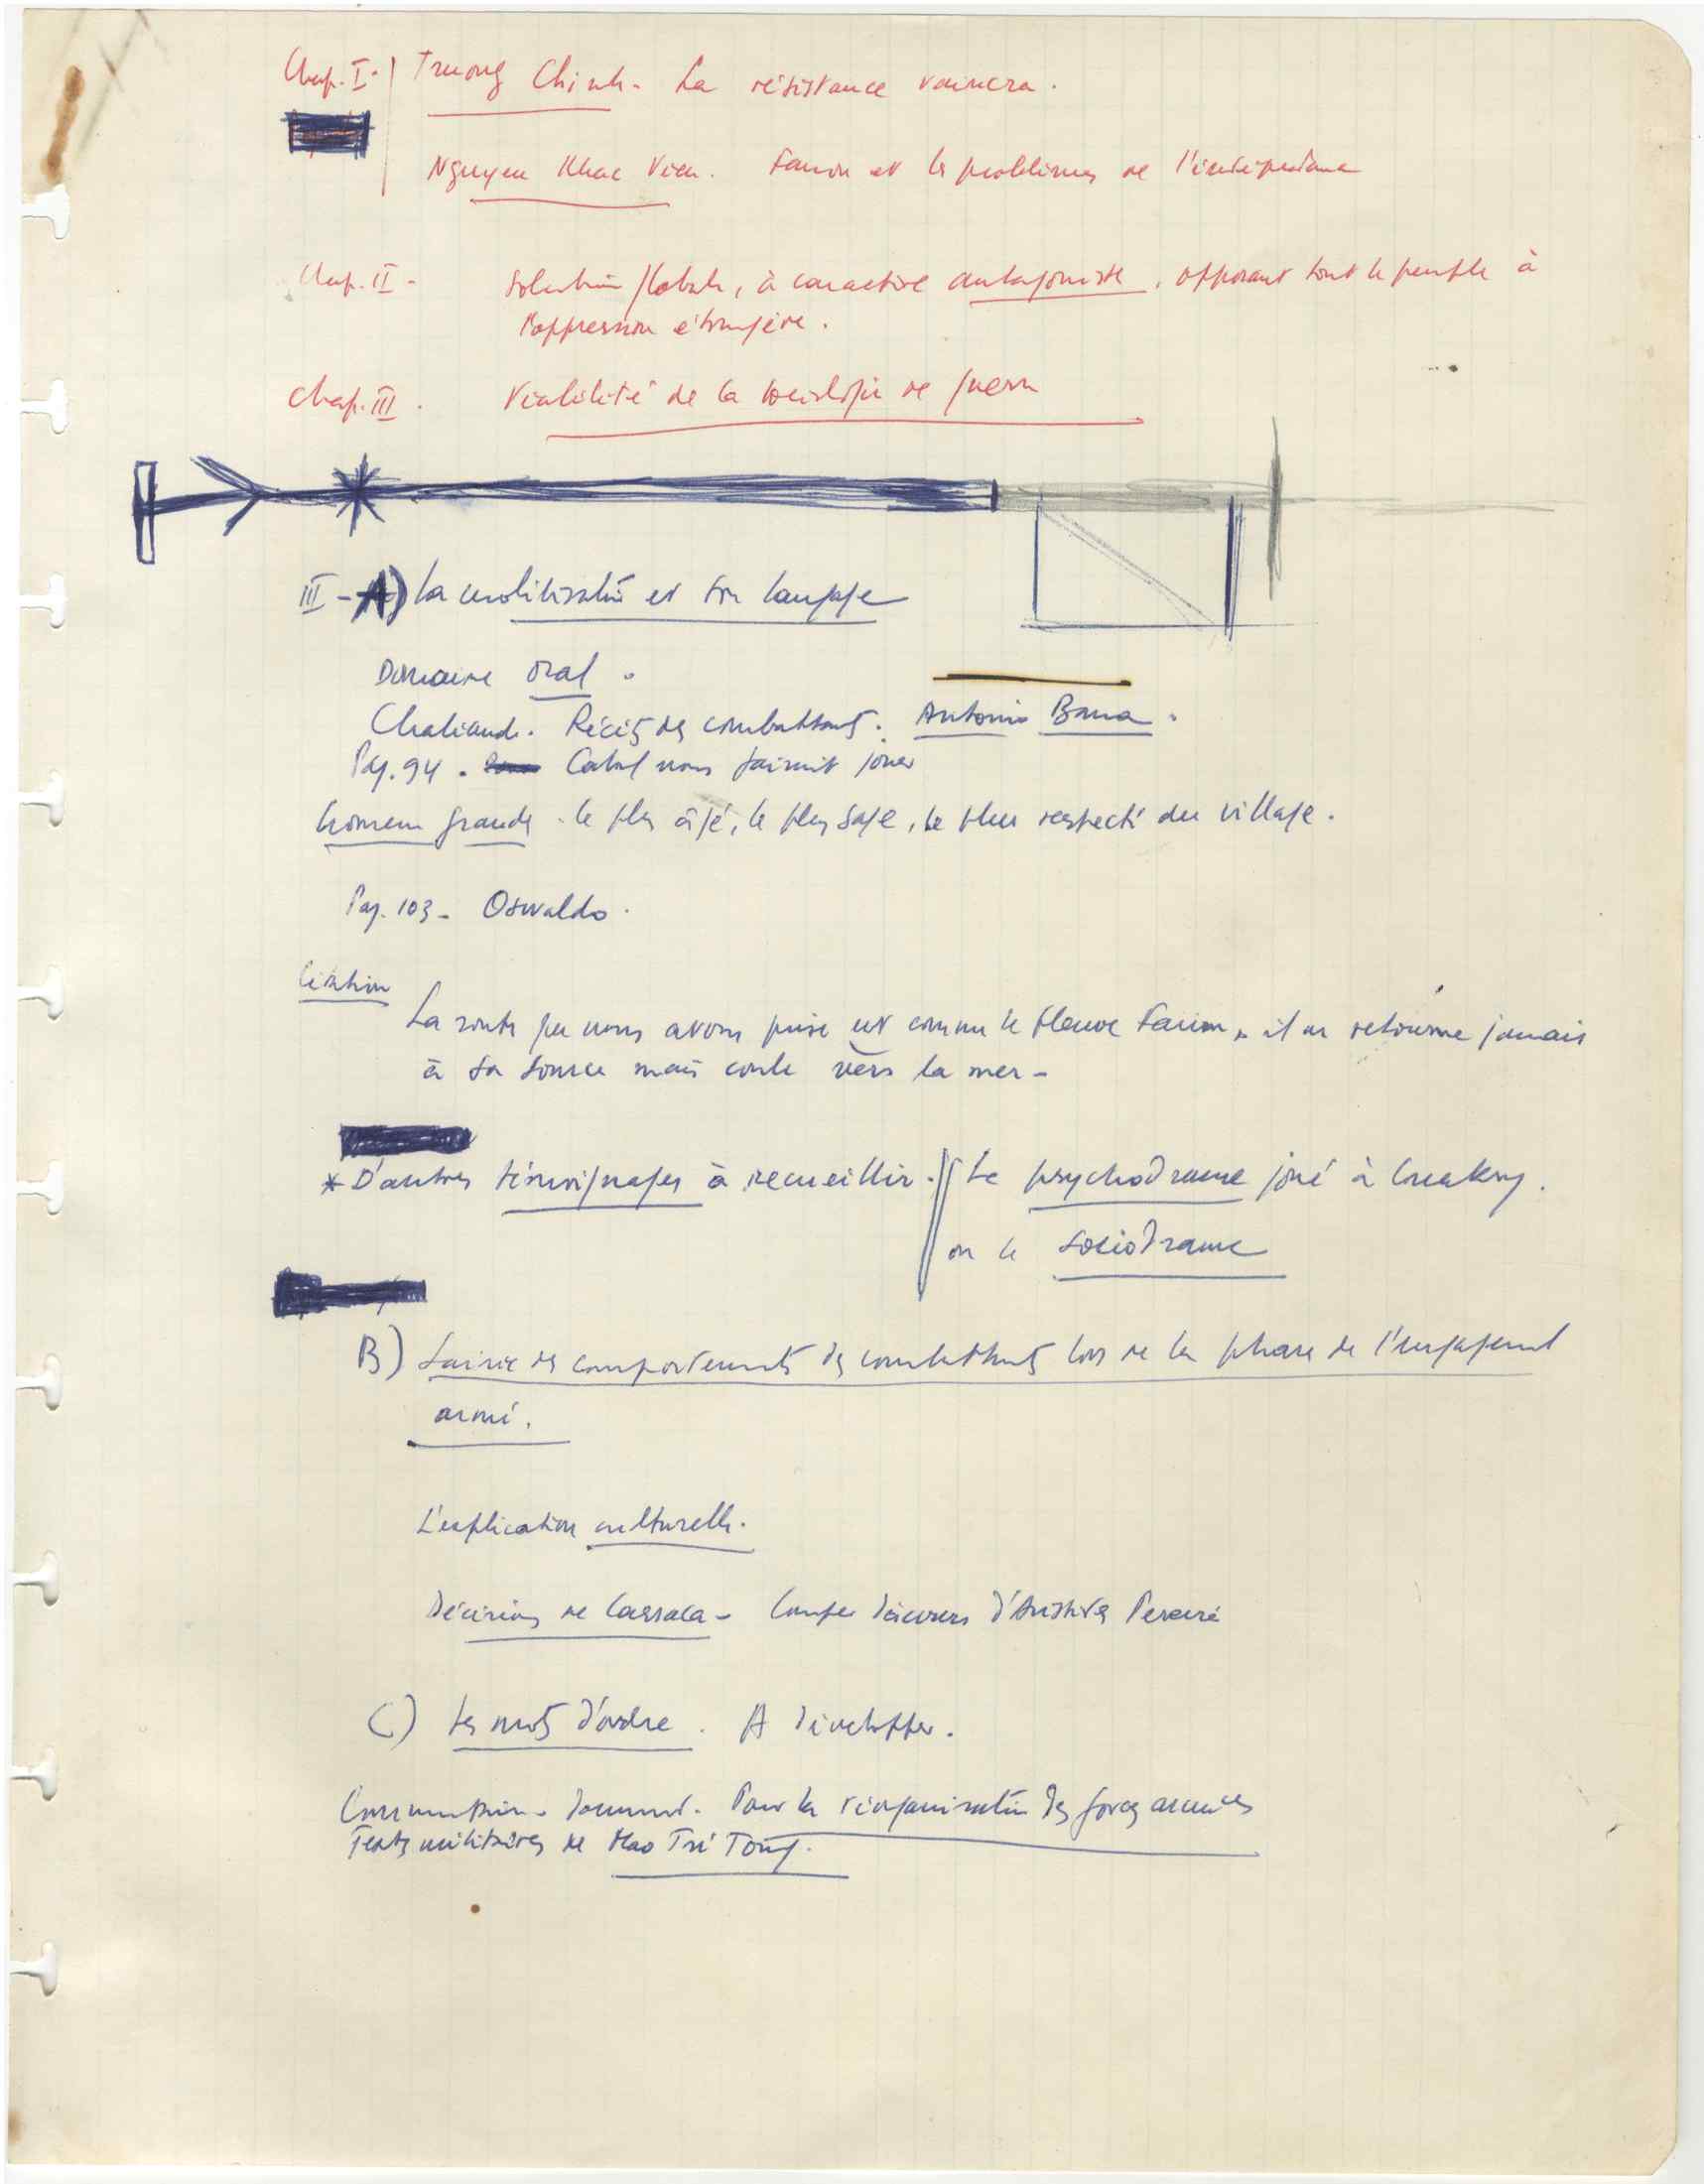 Chap. I - Truong Chinh - La résistance vaincra.
Nguyen Khac Vien. Fanon et les problèmes de l'indépendance
Chap. II - Solution globale, à caractère antagoniste, opposant tout le peuple à
l'oppression étrangère.
Chap. III. Viabilité de la sociologie de guerre
III - A) La mobilisation et son langage
Domaine oral.
Chaliand. Récits des combattants. Antonio Bana.
Pag. 94. Cabral nous faisait jouer
homem grande - le plus âgé, le plus sage, le plus respecté du village.
Pag. 103 - Oswaldo.
Citation
La route que nous avons prise est comme le fleuve Farim, il ne retourne jamais
à sa source mais coule vers la mer -
* D'autres témoignages à recueillir. Le psychodrame joué à Conakry.
ou le sociodrame
B) Saisie des comportements des combattants lors de la phase de l'engagement
armé.
L'explication culturelle.
Décisions de Cassaca - discours d'Aristides Pereira
C) Les mots d'ordre. A développer.
document. Pour la réorganisation des forces armées
Textes militaires de Mao Tsé Toung.